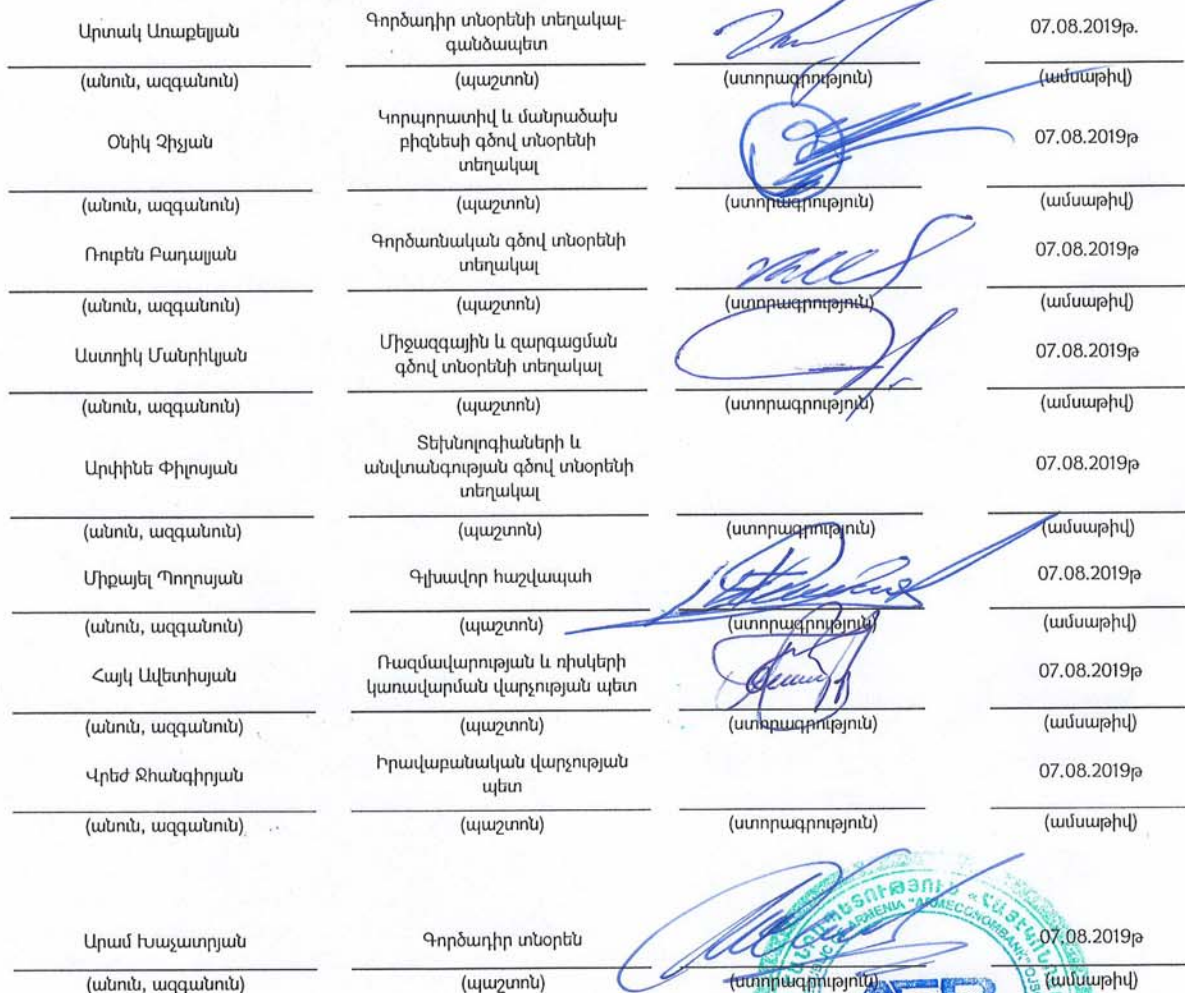 Արտակ Առաքելյան
Գործադիր տնօրենի տեղակալ-
գանձապետ
07.08.2019թ.
(անուն, ազգանուն)
(պաշտոն)
(ստորագրություն)
(ամսաթիվ)
Օնիկ Չիչյան
Կորպորատիվ և մանրածախ
բիզնեսի գծով տնօրենի
տեղակալ
07.08.2019թ
(անուն, ազգանուն)
(պաշտոն)
(ստորագրություն)
(ամսաթիվ)
Ռուբեն Բադալյան
Գործառնական գծով տնօրենի
տեղակալ
07.08.2019թ
(անուն, ազգանուն)
(պաշտոն)
(ստորագրություն)
(ամսաթիվ)
Աստղիկ Մանրիկյան
Միջազգային և զարգացման
գծով տնօրենի տեղակալ
07.08.2019թ
(անուն, ազգանուն)
(պաշտոն)
(ստորագրություն)
(ամսաթիվ)
Արփինե Փիլոսյան
Տեխնոլոգիաների և
անվտանգության գծով տնօրենի
տեղակալ
07.08.2019թ
(անուն, ազգանուն)
(պաշտոն)
(ստորագրություն)
(ամսաթիվ)
Միքայել Պողոսյան
Գլխավոր հաշվապահ
07.08.2019թ
(անուն, ազգանուն)
(պաշտոն)
(ստորագրություն)
(ամսաթիվ)
Հայկ Ավետիսյան
Ռազմավարության և ռիսկերի
կառավարման վարչության պետ
07.08.2019թ
(անուն, ազգանուն)
(պաշտոն)
(ստորագրություն)
(ամսաթիվ)
Վրեժ Ջհանգիրյան
Իրավաբանական վարչության
պետ
07.08.2019թ
(անուն, ազգանուն)
(պաշտոն)
(ստորագրություն)
(ամսաթիվ)
Արամ Խաչատրյան
Գործադիր տնօրեն
07.08.2019թ
(անուն, ազգանուն)
(պաշտոն)
(ստորագրություն)
(ամսաթիվ)
ARMENIA "ARMECONOMBANK" OJSC